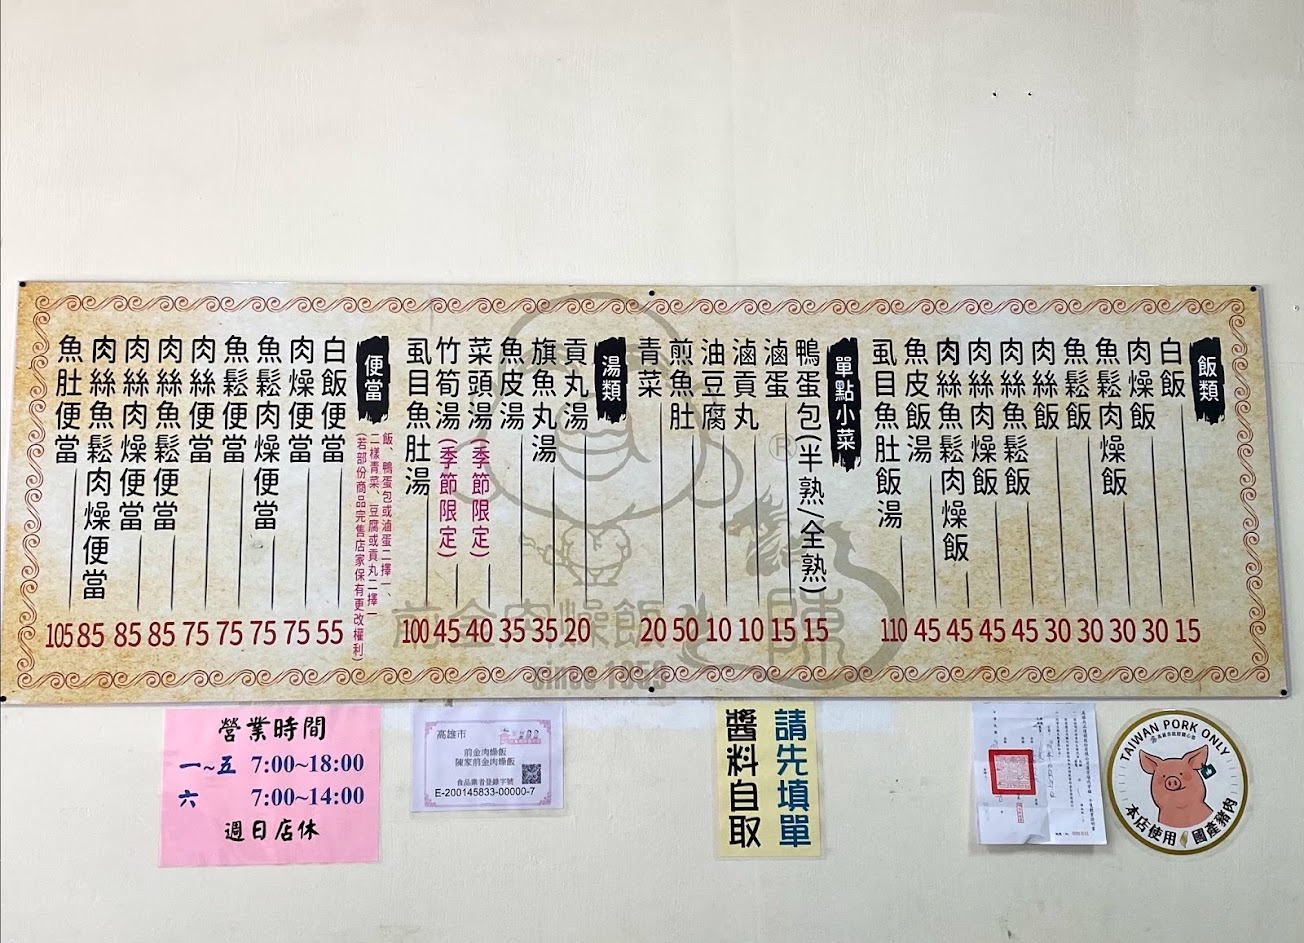 飯類
白飯 15
肉燥飯 30
魚鬆肉燥飯 30
魚鬆飯 30
肉絲飯 30
肉絲魚鬆飯 45
肉絲肉燥飯 45
肉絲魚鬆肉燥飯 45
魚皮飯湯 45
虱目魚肚飯湯 110
單點小菜
鴨蛋包(半熟/全熟) 15
滷蛋 15
滷貢丸 10
油豆腐 10
煎魚肚 50
青菜 20
湯類
貢丸湯 20
旗魚丸湯 35
魚皮湯 35
菜頭湯(季節限定) 40
竹筍湯(季節限定) 45
虱目魚肚湯 100
便當
飯、鴨蛋包或滷蛋二擇一、
二樣青菜、豆腐或貢丸二擇一
(若部份商品完售店家保有更改權利)
白飯便當 55
肉燥便當 75
魚鬆肉燥便當 75
魚鬆便當 75
肉絲便當 75
肉絲魚鬆便當 85
肉絲肉燥便當 85
肉絲魚鬆肉燥便當 85
魚肚便當 105
前金肉燥飯 陳
®
since 1959
營業時間
一~五 7:00~18:00
六 7:00~14:00
週日店休
高雄市
前金肉燥飯
陳家前金肉燥飯
食品業者登錄字號
E-200145833-00000-7
請先填單
醬料自取
TAIWAN PORK ONLY
本店使用 國產豬肉